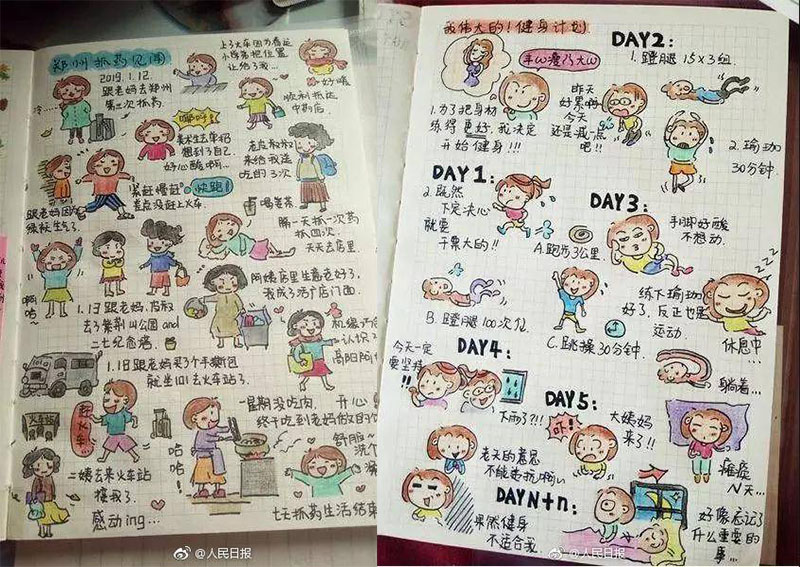 郑州抓药见闻
2019.1.12.
跟老妈去郑州
第二次抓药
冷...
上了火车因为春运
小伟哥把位置
让给了我...
好暖
顺利抵达
中药店.
美术生去单招
想到了自己
好心酸啊...
来给我送
吃的3次
紧赶慢赶
差点没赶上火车.
快跑!
喝姜茶
跟老妈因
隔一天抓一次药
抓四次.
天天去店里.
啊哈~
阿姨店里生意老好了.
我成了活广店门面.
1.1日跟老妈、
去了紫荆山公园and
二七纪念塔.
1.1日跟老妈买了个手撕包
就坐101去火车站了.
火车站
赶火车...
咕咕!
一星期没吃肉.
开心
终于吃到老妈做的饭
舒服~
二姨去火车站
接我了.
感动ing...
七天抓药生活结束
@人民日报
我伟大的!健身计划
1.为了把身材
练得更好.我决定
开始健身!!!
DAY2:
1.蹬腿 15×3组.
昨天
好累啊
今天
还是减一点
吧!!
2.瑜珈
30分钟.
DAY1:
2.既然
下定决心
就要
干票大的!!
A.跑步3公里.
B.蹬腿100次/位
C.跳操30分钟.
DAY3:
手脚好酸
不想动.
练下瑜珈
好了.反正也是
运动.
zzz
休息中...
DAY4:
今天一定
要坚持
!!
下雨了?!!
老天的意思
不能违抗啊~
躺着...
DAY5:
大姨妈
来了!!
瘫痪
N天...
DAYN+n:
果然健身
不适合我.
好像忘记了
什么重要的
事...
@人民日报